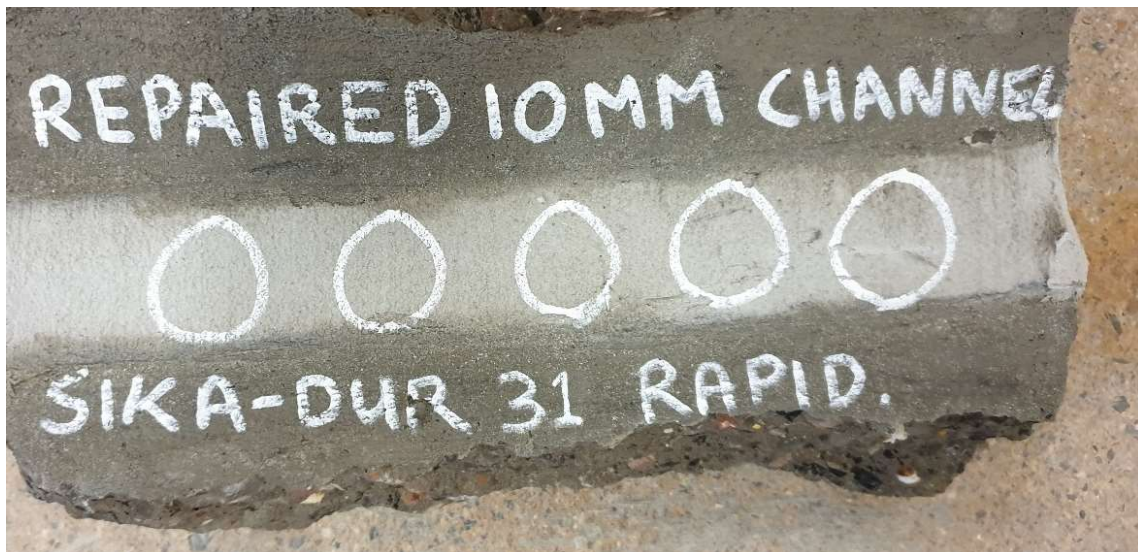 REPAIRED 10MM CHANNEL
SIKA-DUR 31 RAPID.